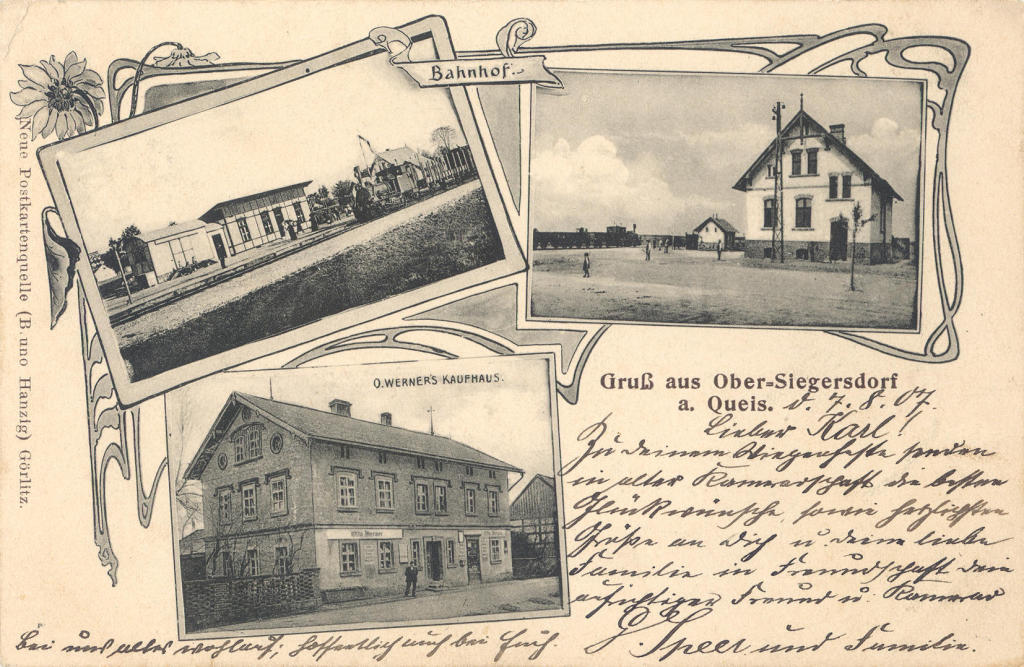 Bahnhof.
O. WERNER'S KAUFHAUS.
Otto Werner
Neue Postkartenquelle (B. uno Hanzig) Görlitz.
Gruß aus Ober-Siegersdorf
a. Queis. d. 7. 8. 07.
Lieber Karl!
Zu deinem Wiegenfeste senden
in alter Kameradschaft die besten
Glückwünsche, sowie herzlichsten
Grüße an Dich u. deine liebe
Familie in Freundschaft dein
aufrichtiger Freund u. Kamerad
G. Speer und Familie.
Bei uns alles wohlauf, hoffentlich auch bei Euch.